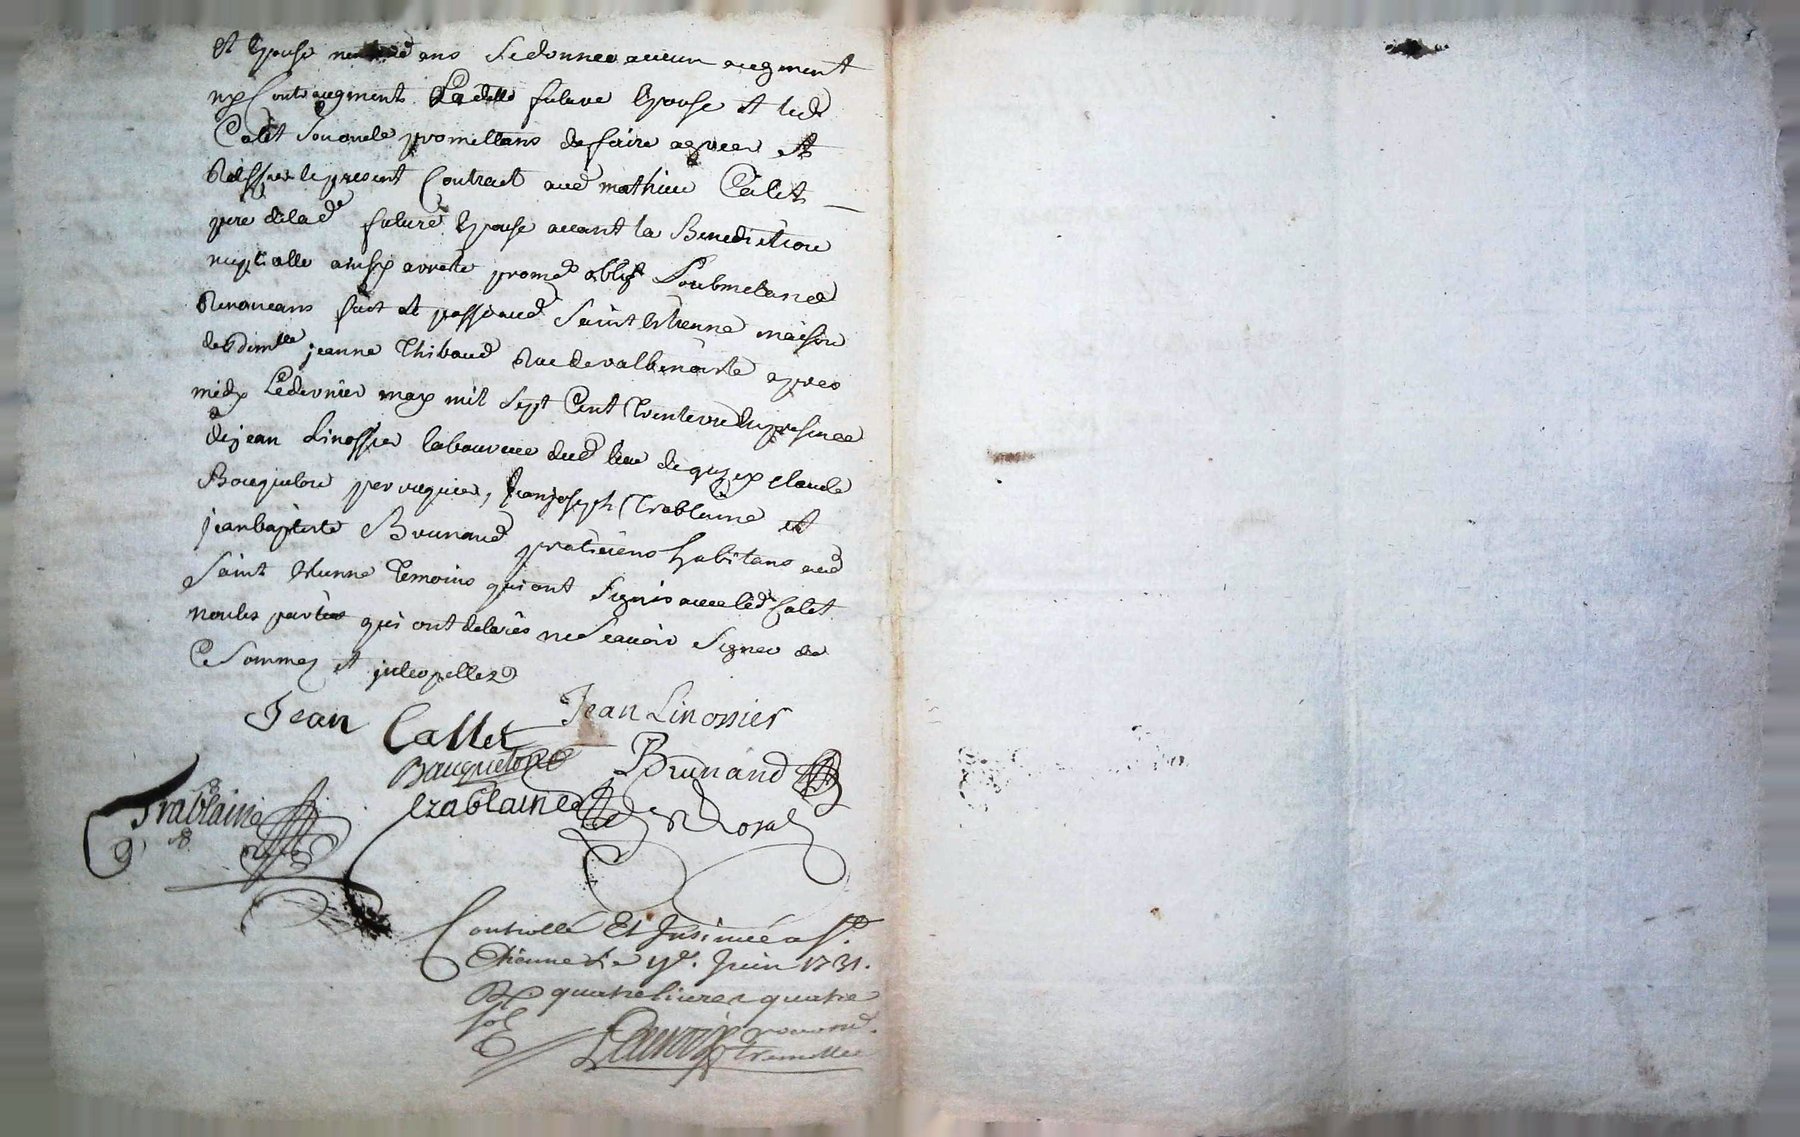 et Epouse ans se donner aucun augment
ny Contraugment. Ladelle future Epouse et led.
Calet son oncle promettans de faire agreer et
le present Contract aud mathieu Calet
pere de lad. future Epouse auant la Benediction
nuptialle ainsy arreste prome oblig Soubmetans
Renoncans fait et passé aud Saint Etienne maison
de jeanne Thibaud Rue de valbenoiste apres
midy Le dernier may mil Sept Cent Trente un En presence
de jean Linossier laboureur dud lieu de Claude
Bouquelon peruquier, jean joseph Trablaine et
jean baptiste Brunand praticiens habitans aud
Saint Etienne Temoins qui ont Signés auec led Calet
non les parties qui ont declarés ne Scauoir Signer de
ce Sommez et interpellez
Jean Callet Jean Linossier
Brunand
Trablaine Trablaine
Controllé Et Insinué a St.
Etienne Le Juin 1731.
quatre liures quatre
sols